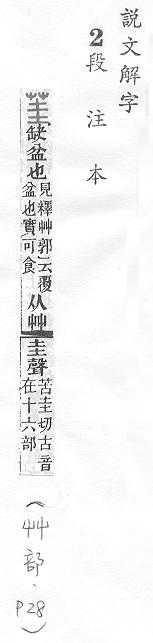 説文解字
2段注本
茥缺盆也見釋艸郭云覆盆也實可食从艸圭聲苦圭切古音在十六部
(艸部、P28)